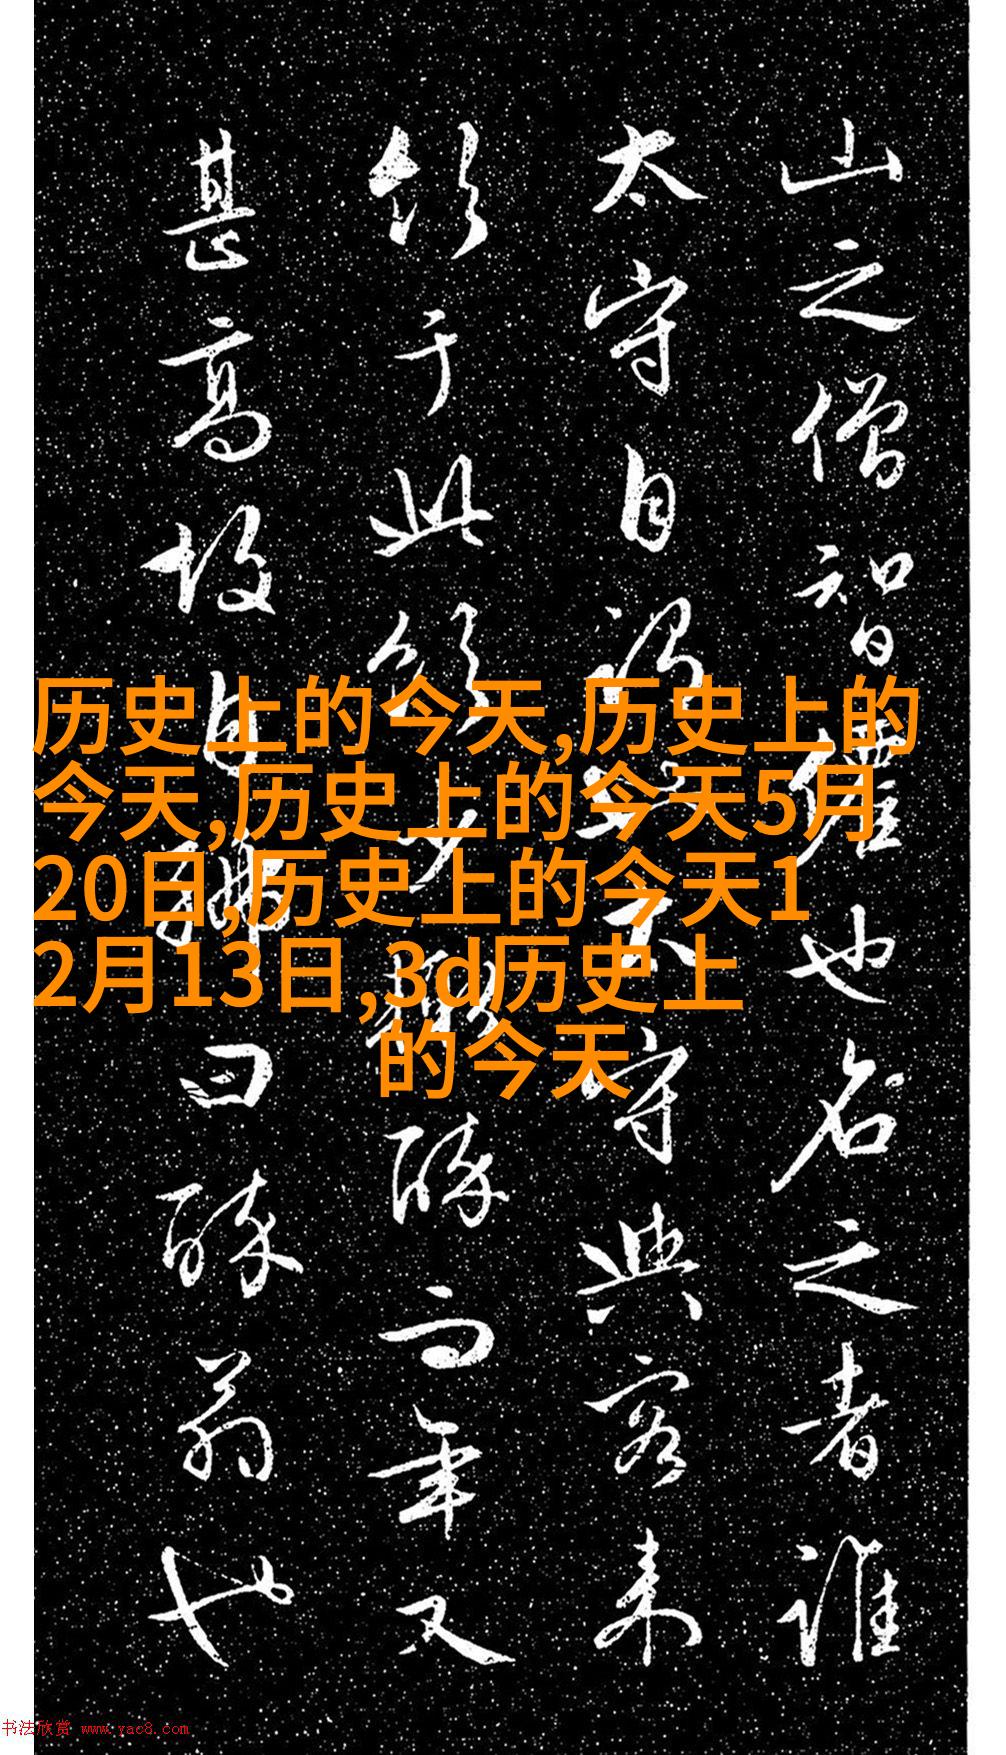 山之僧智僊也名之者誰
太守自謂也太守與客来
飲于此飲少輒醉而年又
甚高故自號曰醉翁也
历史上的今天,历史上的
今天,历史上的今天5月
20日,历史上的今天1
2月13日,3d历史上
的今天
书法欣赏 www.yac8.com